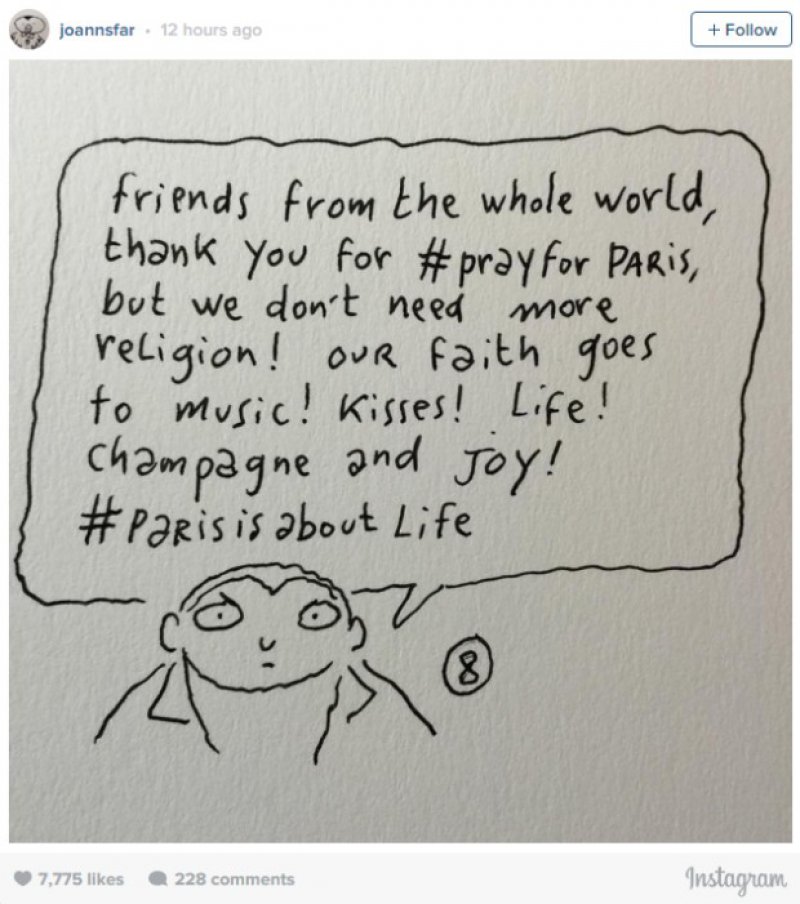 joannsfar • 12 hours ago
+ Follow
friends from the whole world,
thank you for #prayforPARis,
but we don't need more
religion! our faith goes
to music! Kisses! Life!
champagne and Joy!
#Paris is about Life
8
7,775 likes 228 comments
Instagram